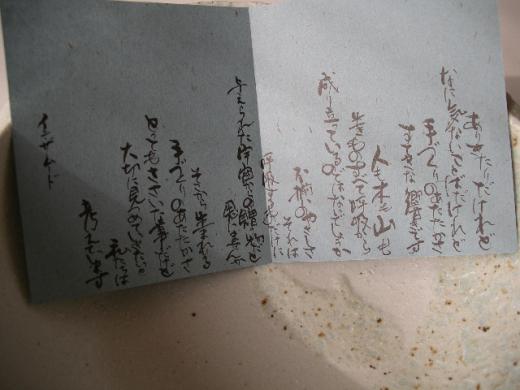 ありきたりだけれども
なに気ないことばだけれども
手づくりのあたたかさ
すてきな響きです
人も木も山も
生きものすべて呼吸から
成り立っているのではないでしょうか
お椀のやさしさ
それは
呼吸するたびに
与えられた宇宙からの贈り物だと
思いませんか
そこから生まれる
手づくりのあたたかさ
とってもささいな事だけども
大切に見つめていきたいと
私たちは
考えています